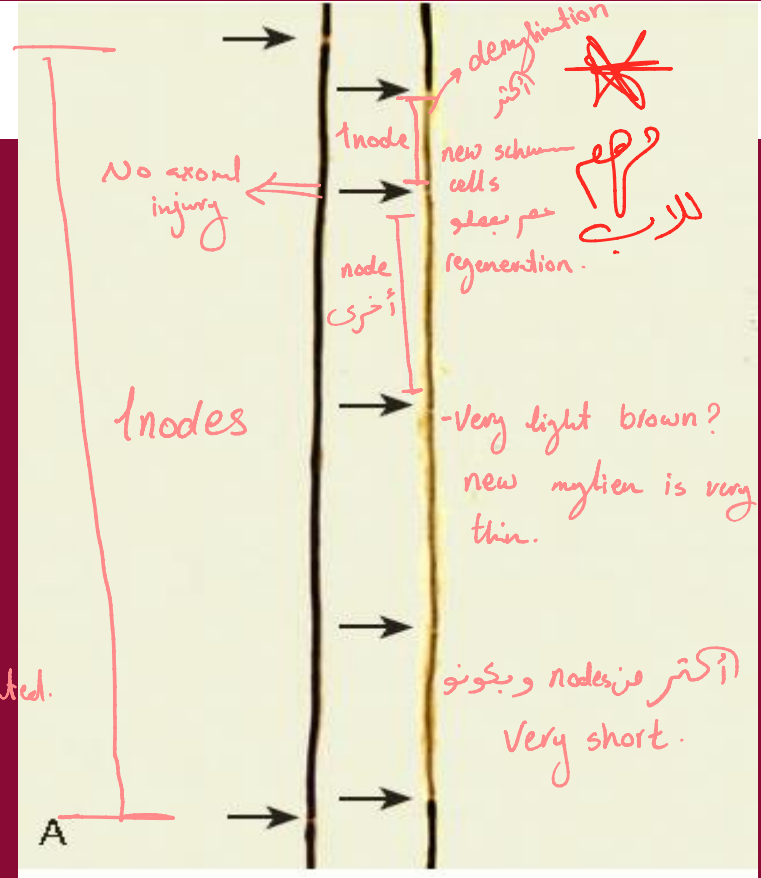 demylination
أكثر
1node
new schw
cells
هم بعملو
regeneration.
No axonal
injury
node
أخرى
1nodes
-Very light brown?
new mylien is very
thin.
ted.
أكثر من nodes وبكونو
Very short.
A